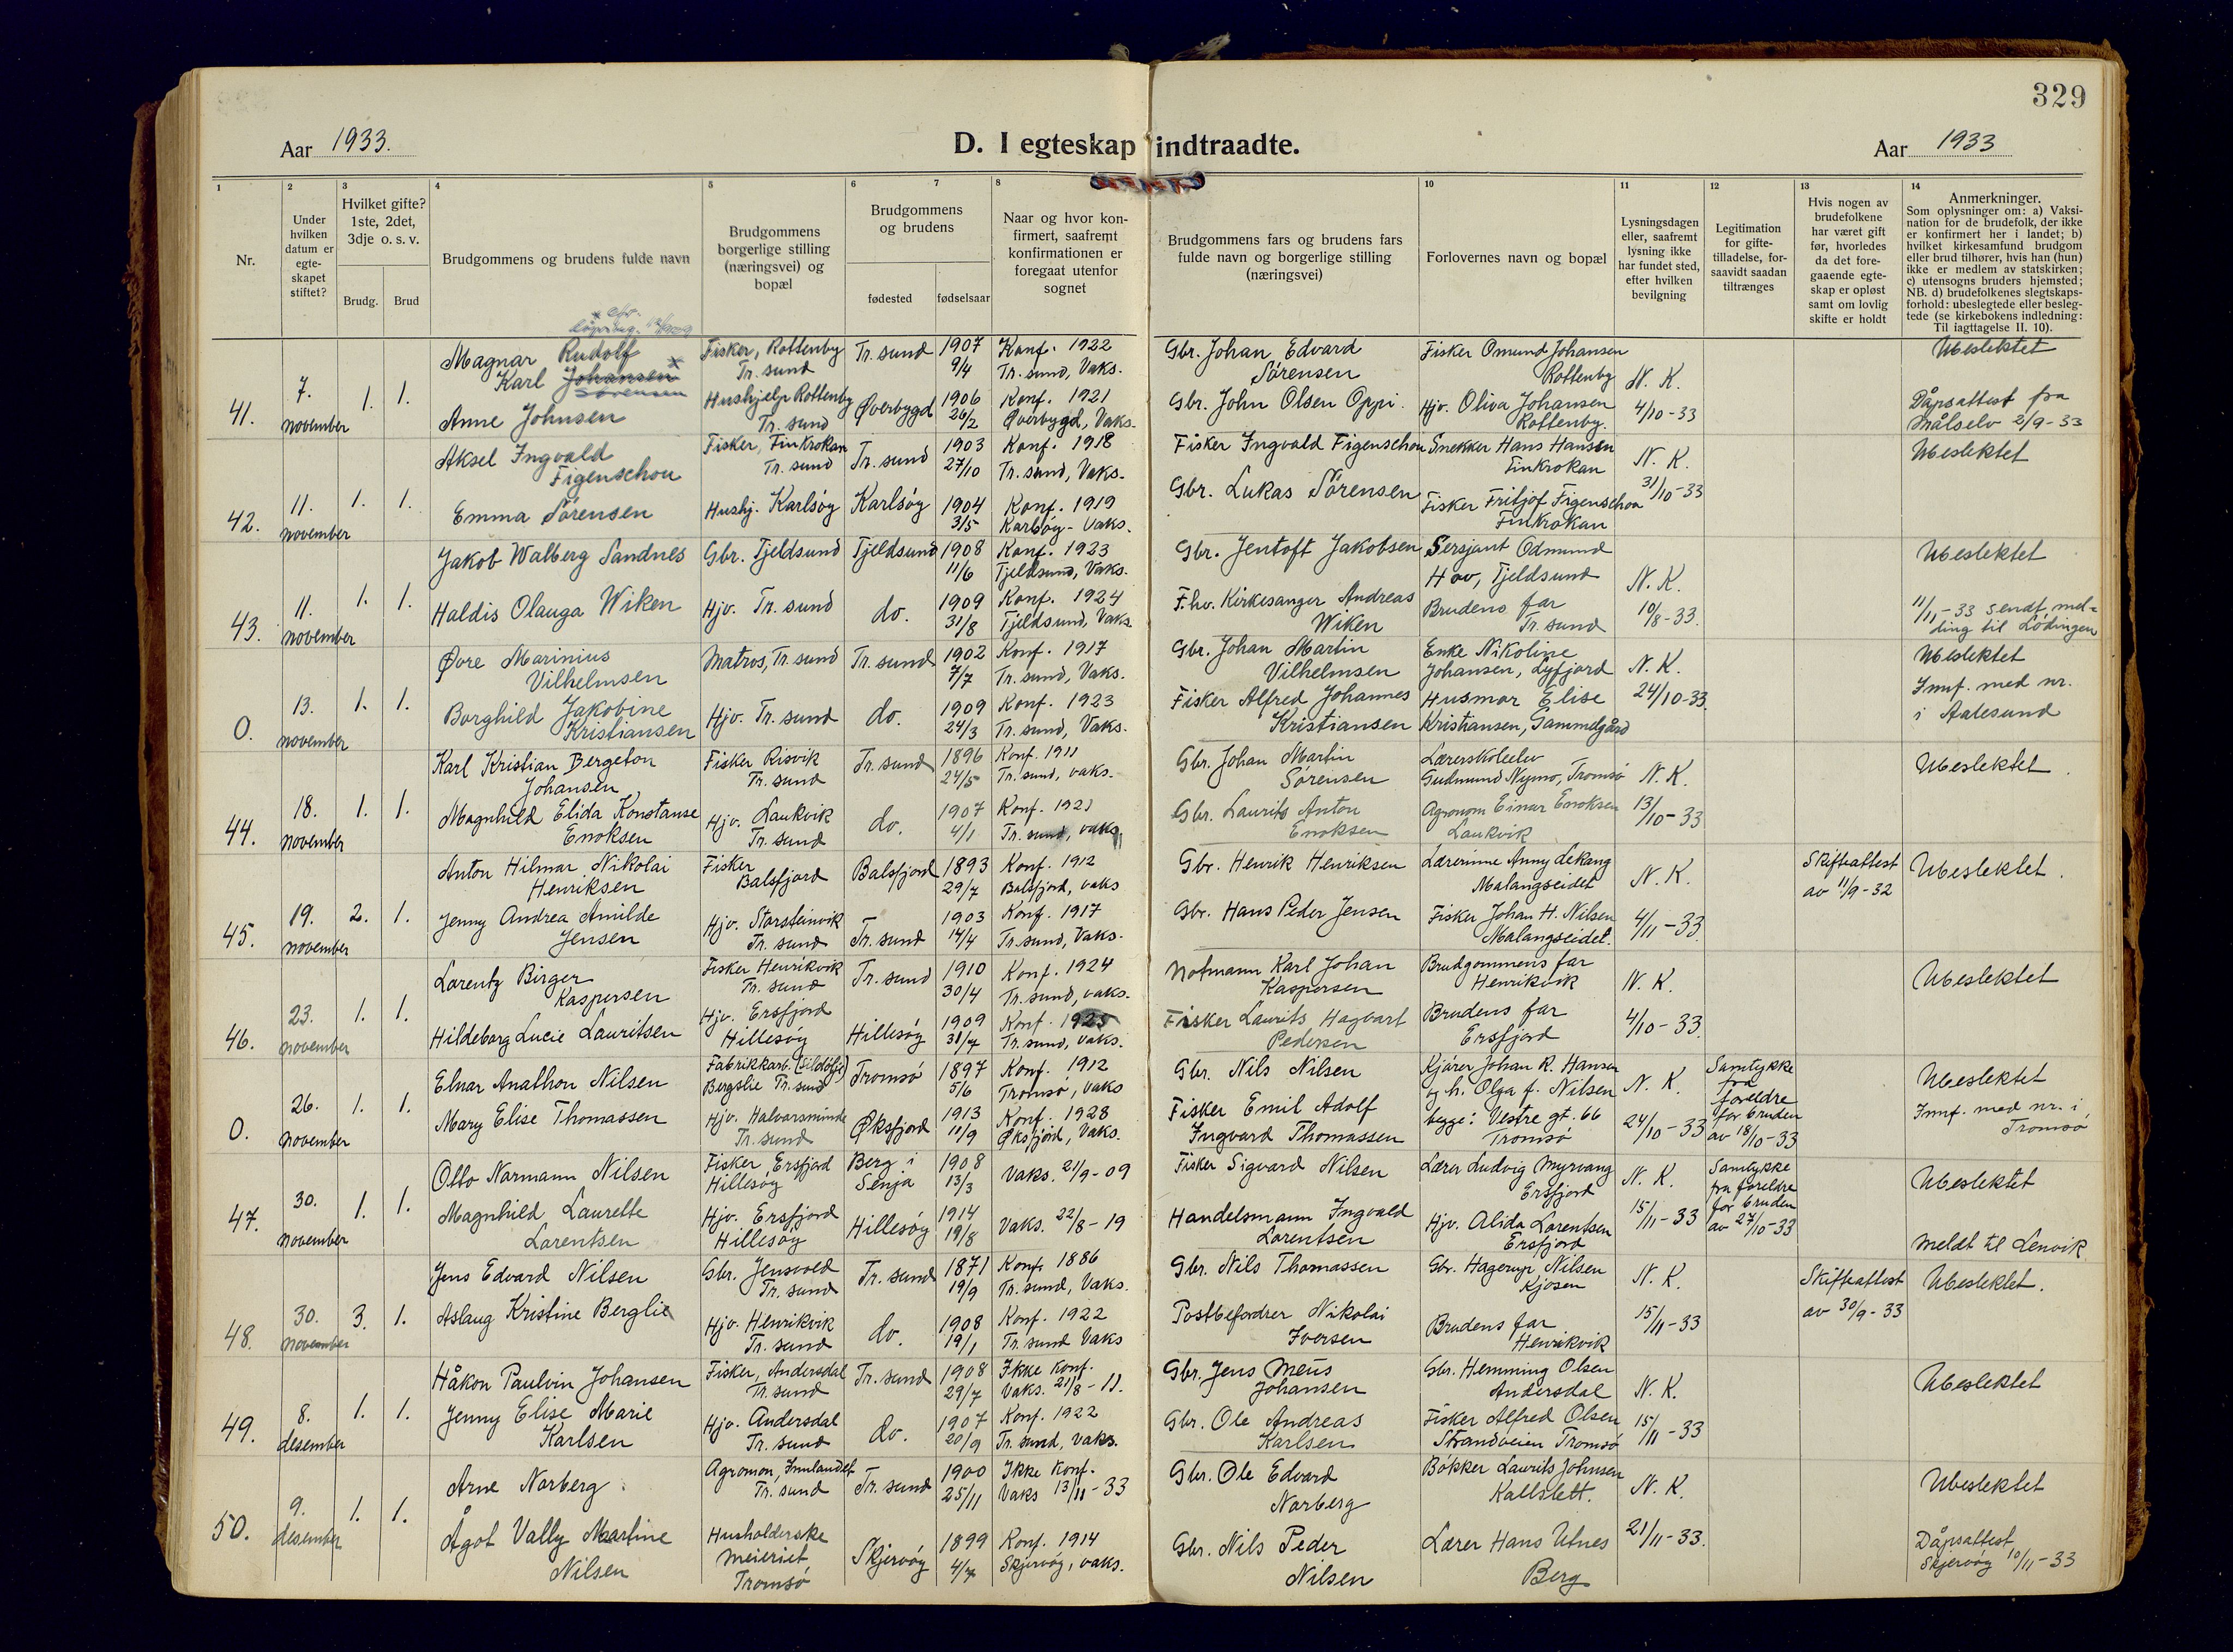 329
Aar 1933.
D. I egteskap indtraadte.
Aar 1933
1 2 3 4 5 6 7 8 10 11 12 13 14
Nr.
Under hvilken datum er egte-skapet stiftet?
Hvilket gifte? 1ste, 2det, 3dje o. s. v.
Brudg. Brud
Brudgommens og brudens fulde navn
Brudgommens borgerlige stilling (næringsvei) og bopæl
Brudgommens og brudens
fødested fødselsaar
Naar og hvor kon-firmert, saafremt konfirmationen er foregaat utenfor sognet
Brudgommens fars og brudens fars fulde navn og borgerlige stilling (næringsvei)
Forlovernes navn og bopæl
Lysningsdagen eller, saafremt lysning ikke har fundet sted, efter hvilken bevilgning
Legitimation for gifte-tilladelse, for-saavidt saadan tiltrænges
Hvis nogen av brudefolkene har været gift før, hvorledes da det fore-gaaende egte-skap er opløst samt om lovlig skifte er holdt
Anmerkninger.
Som oplysninger om: a) Vaksi-nation for de brudefolk, der ikke er konfirmert her i landet; b) hvilket kirkesamfund brudgom eller brud tilhører, hvis han (hun) ikke er medlem av statskirken; c) utensogns bruders hjemsted; NB. d) brudefolkenes slegtskaps-forhold: ubeslegtede eller besleg-tede (se kirkebokens indledning: Til iagttagelse II. 10).
41. 7. november 1. 1.
Magnar Rudolf Karl Johansen Sørensen
Fisker, Rottenby Tr. sund
Tr. sund 1907 9/4
Konf. 1922 Tr. sund, Vaks.
Gbr. Johan Edvard Sørensen
Fisker Omund Johansen Rottenby
N. K. 4/10-33
Ubeslektet
Anne Johnsen
Hushjelp Rottenby Tr. sund
Øverbygd 1906 26/2
Konf. 1921 Øverbygd, Vaks.
Gbr. John Olsen Oppi.
Hjv. Oliva Johansen Rottenby.
Dåpsattest fra Målselv 2/9-33
42. 11. november 1. 1.
Aksel Ingvald Figenschou
Fisker, Finkrokan Tr. sund
Tr. sund 1903 27/10
Konf. 1918 Tr. sund, Vaks.
Fisker Ingvald Figenschou
Snekker Hans Hansen Finkrokan
N. K. 31/10-33
Ubeslektet
Emma Sørensen
Hushj. Karlsøy
Karlsøy 1904 3/5
Konf. 1919 Karlsøy - Vaks.
Gbr. Lukas Sørensen
Fisker Fritjof Figenschou Finkrokan
43. 11. november 1. 1.
Jakob Walberg Sandnes
Gbr. Tjeldsund
Tjeldsund 1908 11/6
Konf. 1923 Tjeldsund, Vaks.
Gbr. Jentoft Jakobsen
Sersjant Odmund Hov, Tjeldsund
N. K. 10/8-33.
Ubeslektet
Haldis Olauga Wiken
Hjv. Tr. sund
do. 1909 31/8
Konf. 1924 Tjeldsund, Vaks.
F.hv. Kirkesanger Andreas Wiken
Brudens far Tr. sund
11/11-33 sendt mel=ding til Lødingen
0. 13. november 1. 1.
Øvre Marinius Vilhelmsen
Matros, Tr. sund
Tr. sund 1902 7/7
Konf. 1917 Tr. sund, Vaks.
Gbr. Johan Martin Vilhelmsen
Enke Nikoline Johansen, Lyfjord
N. K. 24/10-33.
Ubeslektet
Borghild Jakobine Kristiansen
Hjv. Tr. sund
do. 1909 24/3
Konf. 1923 Tr. sund, Vaks.
Fisker Alfred Johannes Kristiansen
Husmor Elise Kristiansen, Gammelgård
Innf. med nr. i Aalesund
44. 18. november 1. 1.
Karl Kristian Bergeton Johansen
Fisker Risvik Tr. sund
Tr. sund 1896 24/5
Konf. 1911 Tr. sund, vaks.
Gbr. Johan Martin Sørensen
Lærerskoleelev Gudmund Nymo, Tromsø
N. K. 13/10-33
Ubeslektet.
Magnhild Elida Konstanse Enoksen
Hjv. Laukvik Tr. sund
do. 1907 4/1
Konf. 1921 Tr. sund, vaks.
Gbr. Laurits Anton Enoksen
Agronom Einar Enoksen Laukvik
45. 19. november 2. 1.
Anton Hilmar Nikolai Henriksen
Fisker Balsfjord
Balsfjord 1893 29/7
Konf. 1912 Balsfjord, vaks
Gbr. Henrik Henriksen
Lærerinne Anny Lekang Malangseidet
N. K. 4/11-33.
Skifteattest av 11/9-32
Ubeslektet.
Jenny Andrea Amilde Jensen
Hjv. Storsteinvik Tr. sund
Tr. sund 1903 14/4
Konf. 1917 Tr. sund, Vaks.
Gbr. Hans Peder Jensen
Fisker Johan H. Nilsen Malangseidet.
46. 23. november 1. 1.
Lorentz Birger Kaspersen
Fisker Henrikvik Tr. sund
Tr. sund 1910 30/4
Konf. 1924 Tr. sund, vaks.
Notmann Karl Johan Kaspersen
Brudgommens far Henrikvik
N. K. 4/10-33.
Ubeslektet
Hildeborg Lucie Lauritsen
Hjv. Ersfjord Hillesøy
Hillesøy 1909 31/7
Konf. 1925 Tr. sund, vaks.
Fisker Laurits Hagbart Pedersen
Brudens far Ersfjord
0. 26. november 1. 1.
Elnar Anathon Nilsen
Fabrikkarb. Bergslie Tr. sund
Tromsø 1897 5/6
Konf. 1912 Tromsø, vaks
Gbr. Nils Nilsen
Kjører Johan R. Hansen og h. Olga f. Nilsen
N. K. 24/10-33
Samtykke fra foreldre for bruden av 18/10-33
Ubeslektet
Mary Elise Thomassen
Hjv. Halvarsminde Tr. sund
Øksfjord 1913 11/9
Konf. 1928 Øksfjord, Vaks.
Fisker Emil Adolf Ingvard Thomassen
begge: Vestre gt. 66 Tromsø
Innf. med nr. i Tromsø
47. 30. november 1. 1.
Otto Normann Nilsen
Fisker, Ersfjord Hillesøy
Berg i Senja 1908 13/3
Vaks. 21/9-09
Fisker Sigvard Nilsen
Lærer Ludvig Myrvang Ersfjord
N. K. 15/11-33
Samtykke fra foreldre for bruden av 27/10-33
Ubeslektet
Magnhild Laurette Lorentsen
Hjv. Ersfjord Hillesøy
Hillesøy 1914 19/8
Vaks. 22/8-19
Handelsmann Ingvald Lorentsen
Hjv. Alida Lorentsen Ersfjord
Meldt til Lenvik
48. 30. november 3. 1.
Jens Edvard Nilsen
Gbr. Jensvold Tr. sund
Tr. sund 1871 19/9
Konf. 1886 Tr. sund, Vaks.
Gbr. Nils Thomassen
Gbr. Hagerup Nilsen Kjosen
N. K. 15/11-33
Skifteattest av 30/9-33
Ubeslektet.
Aslaug Kristine Berglie
Hjv. Henrikvik Tr. sund
do. 1908 19/1
Konf. 1922 Tr. sund Vaks
Postbefordrer Nikolai Iversen
Brudens far Henrikvik
49. 8. desember 1. 1.
Håkon Paulvin Johansen
Fisker, Andersdal Tr. sund
Tr. sund 1908 29/7
Ikke konf. Vaks. 21/8-11.
Gbr. Jens Meus Johansen
Gbr. Hemming Olsen Andersdal
N. K. 15/11-33
Ubeslektet
Jenny Elise Marie Karlsen
Hjv. Andersdal Tr. sund
do. 1907 20/9
Konf. 1922 Tr. sund, vaks.
Gbr. Ole Andreas Karlsen
Fisker Alfred Olsen Strandveien Tromsø
50. 9. desember 1. 1.
Arne Norberg
Agronom, Innlandet Tr. sund
Tr. sund 1900 25/11
Ikke konf. Vaks 13/11-33
Gbr. Ole Edvard Norberg
Bøkker Laurits Johnsen Kallslett.
N. K. 21/11-33.
Ubeslektet
Ågot Vally Martine Nilsen
Husholderske meieriet Tromsø
Skjervøy 1899 4/7
Konf. 1914 Skjervøy, vaks.
Gbr. Nils Peder Nilsen
Lærer Hans Utnes Berg
Dåpsattest Skjervøy 10/11-33